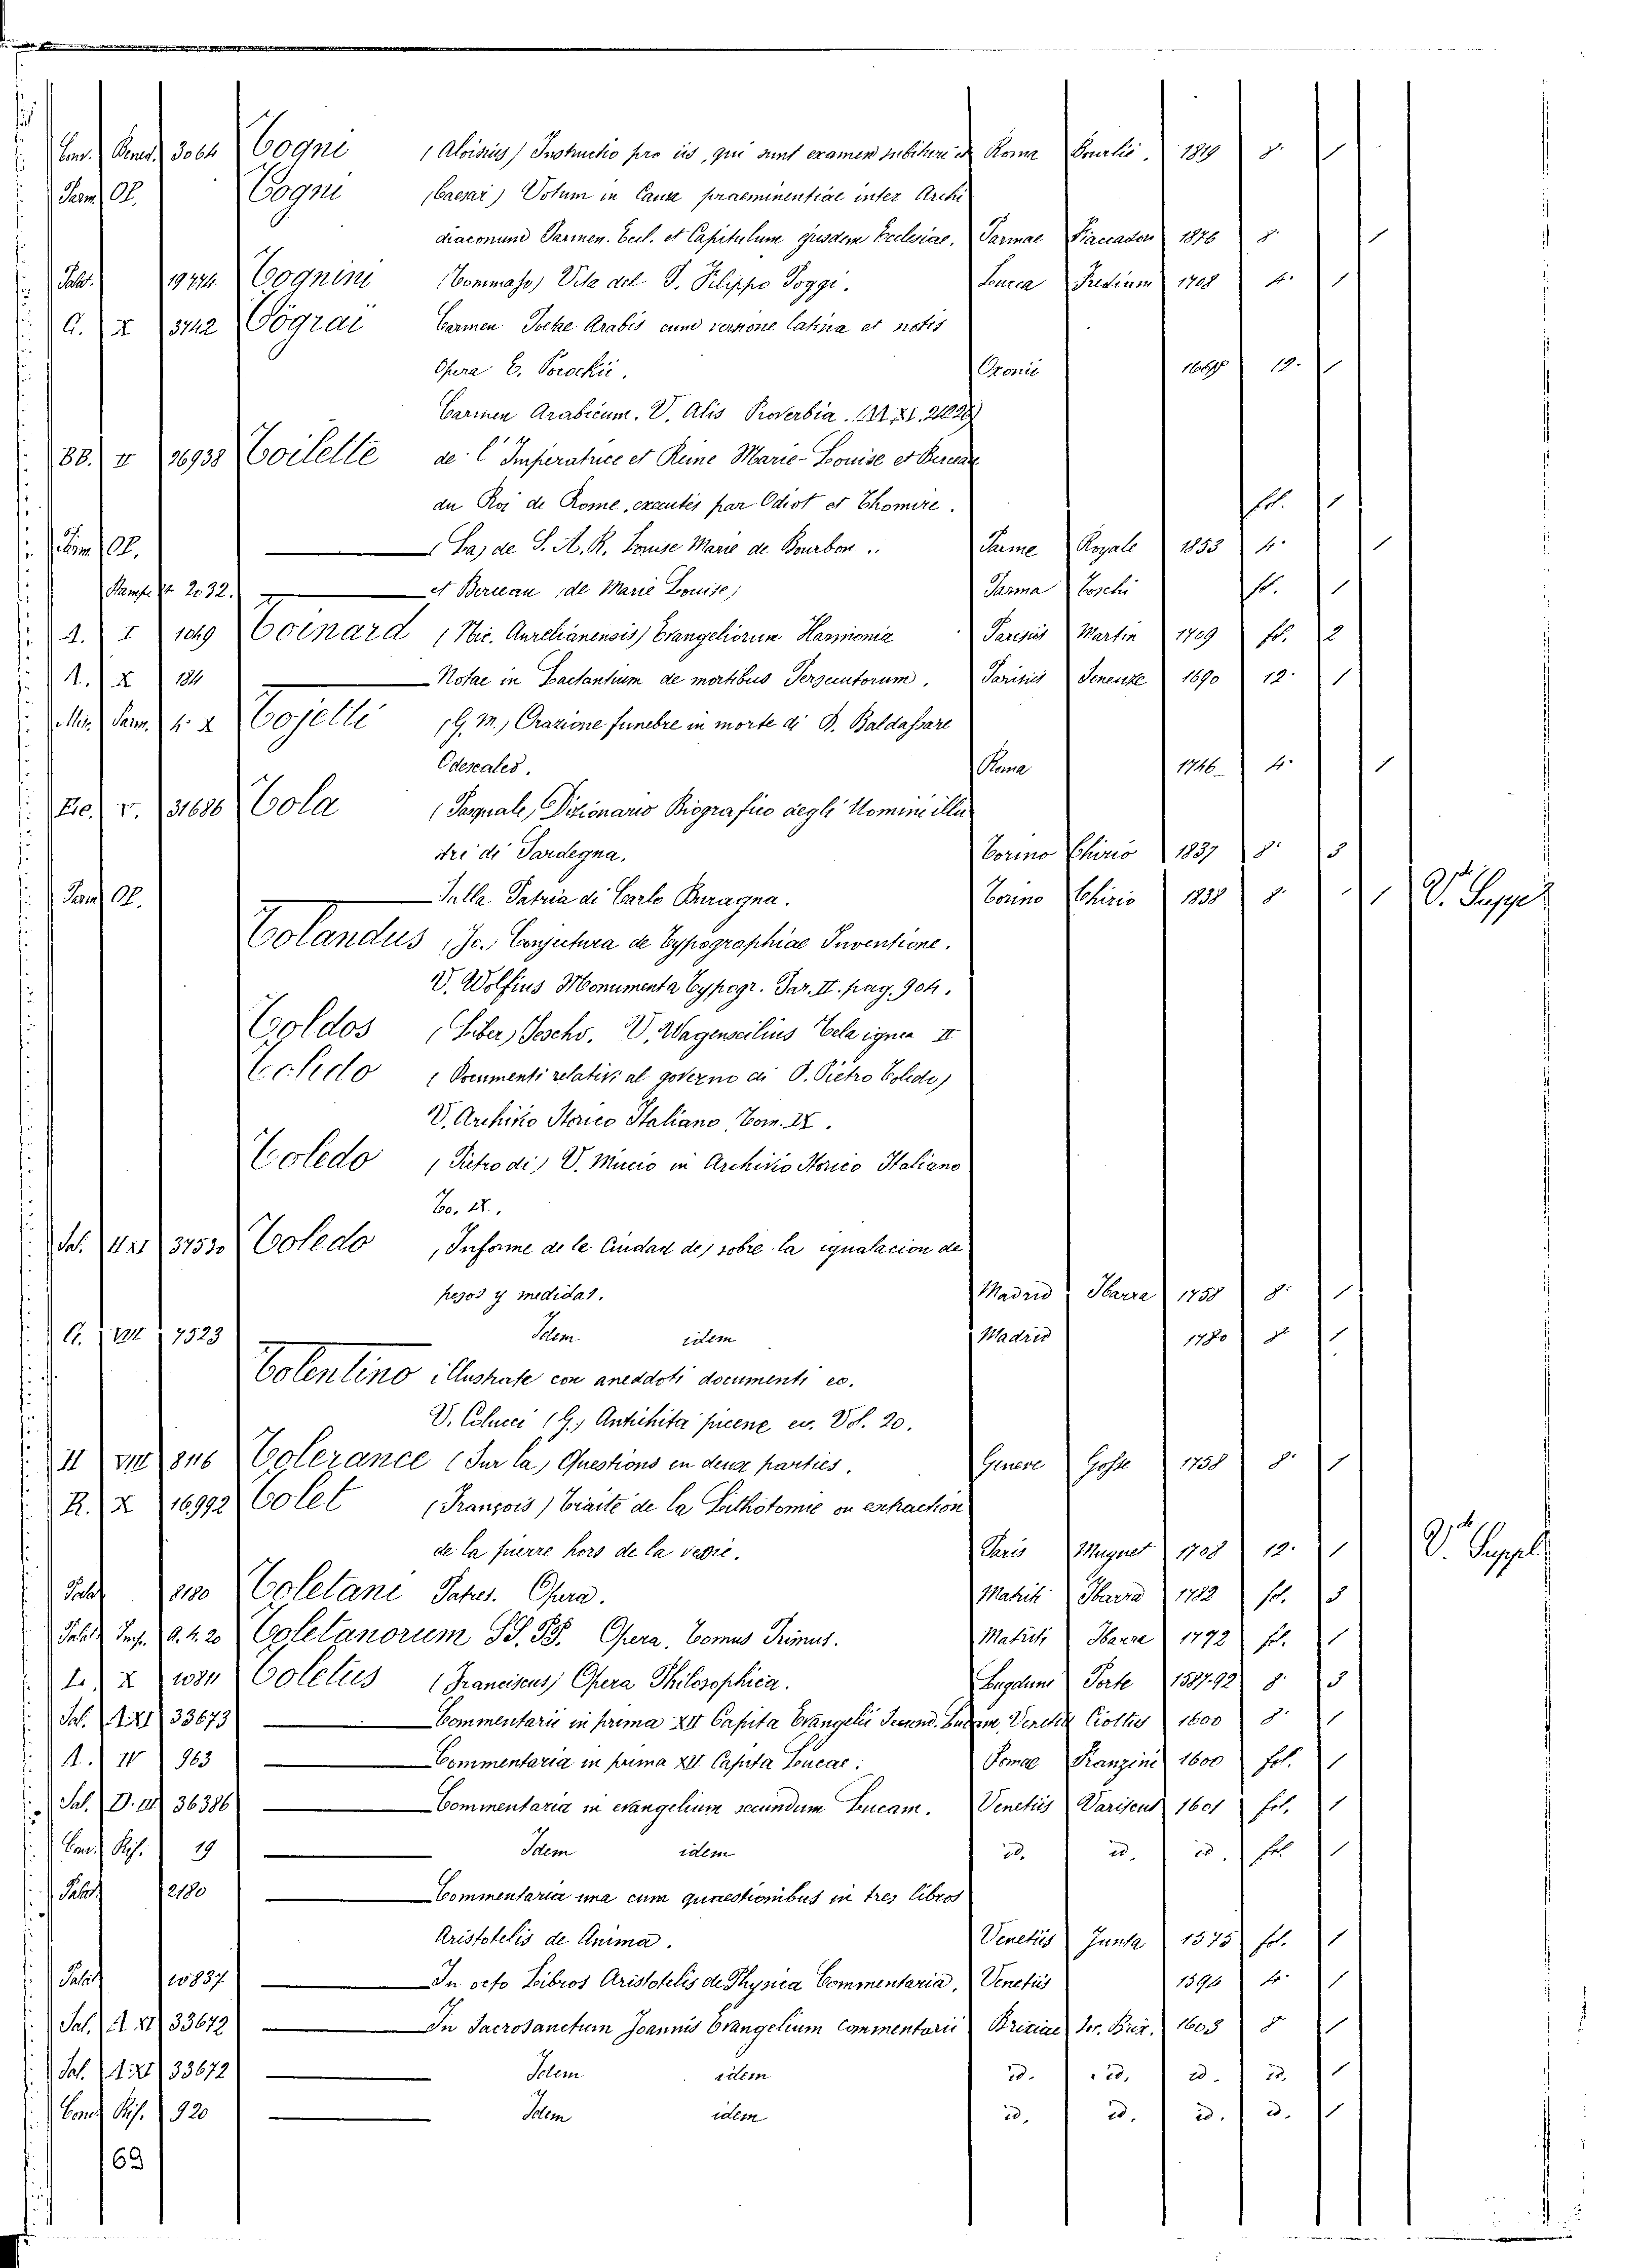 Conv. Bened. 3064 Togni (Aloisius) Instructio pro iis, qui sunt examen subituri Roma Bourlié. 1819 8. 1
Parm. Of. Togni (Caesar) Votum in Causa praeeminentiae inter Archi
diaconum Parmen. Eccl. et Capitulum ejusdem Ecclesiae. Parmae Fiaccadori 1876 8. 1
Palat. 19774. Tognini (Tommaso) Vita del P. Filippo Poggi. Lucca Frediani 1708 4. 1
G. X 3742 Tögrai Carmen Tocke Arabis cum versione latina et notis
Opera E. Pocockii. Oxonii 12. 1
Carmen Arabicum. V. Alis Proverbia.
BB. II 26938 Toilette de l'Imperatrice et Reine Marie-Louise et Berceau
du Roi de Rome, executés par Odiot et Thomire. fol. 1
Parm. Of. (La) de S. A. R. Louise Marie de Bourbon .. Parme Royale 1853 4. 1
Stampe 2032. et Berceau (de Marie Louise) Parma Toschi fol. 1
A. I 1049 Toinard (Nic. Aurelianensis) Evangeliorum Harmonia Parisiis Martin 1709 fol. 2
A. X 184 Notae in Lactantium de mortibus Persecutorum. Parisiis Seneuze 1690 12. 1
Misc. Parm. 4. X Tojelli (G. M.) Orazione funebre in morte di B. Baldassare
Odescales. Roma 1746 4. 1
V. 31686 Tola (Pasquale) Dizionario Biografico degli Uomini illu
stri di Sardegna. Torino Chirio 1837 8. 3
Parm. Of. Sulla Patria di Carlo Buragna. Torino Chirio 1838 8. 1 V. Suppl
Tolandus (Jo.) Conjectura de Typographiae Inventione.
V. Wolfius Monumenta Typogr. Par. II. pag. 904.
Toldos (Liber) Jeschv. V. Wagenseilius Tela ignea II
Toledo (Documenti relativi al governo di D. Pietro Toledo)
V. Archivio Storico Italiano Tom. IX.
Toledo (Pietro di) V. Mucio in Archivio Storico Italiano
To. IX.
Sal. 37530 Toledo (Informe de le Ciudad de) sobre la igualacion de
pesos y medidas. Madrid Ibarra 1758 8. 1
G. VIII 7523 Idem idem Madrid 1780 1
Tolentino illustrato con aneddoti documenti ec.
V. Colucci (G.) Antichità picene ec. Vol. 20.
II VIII 846 Tolerance (Sur la) Questions en deux parties. Geneve Gosse 1758 8. 1
R. X 16992 Tolet (François) Traité de la Lithotomie ou extraction
de la pierre hors de la vessie. Paris Muguet 1708 12. 1 V. Suppl
Palat. 2180 Toletani Patres. Opera. Matriti Ibarra 1782 fol. 3
Palat. Inf. A. 4. 20 Toletanorum SS. PP. Opera. Tomus Primus. Matriti Ibarra 1792 fol. 1
L. X Toletus (Franciscus) Opera Philosophica. Lugduni Porte 1587-92 8. 3
Sal. A. XI 33673 Commentarii in prima XII Capita Evangelii Secund. Lucam Venetiis Ciottus 1600 8. 1
A. IV 963 Commentaria in prima XII Capita Lucae: Romae Franzini 1600 fol. 1
Sal. D. III 36386 Commentaria in evangelium secundum Lucam. Venetiis Variscus 1601 fol. 1
Conv. Rif. 19 Idem idem id. id. id. fol. 1
Palat. 2180 Commentaria una cum quaestionibus in tres libros
Aristotelis de Anima. Venetiis Junta 1575 fol. 1
Palat. 10837 In octo Libros Aristotelis de Physica Commentaria. Venetiis 1596 4. 1
Sal. A XI 33672 In Sacrosanctum Joannis Evangelium Commentarii Brixiae Soc. Brix. 1603 8 1
Sal. A. XI 33672 Idem idem id. id. id. id. 1
Conv. Rif. 920 Idem idem id. id. id. id. 1
69